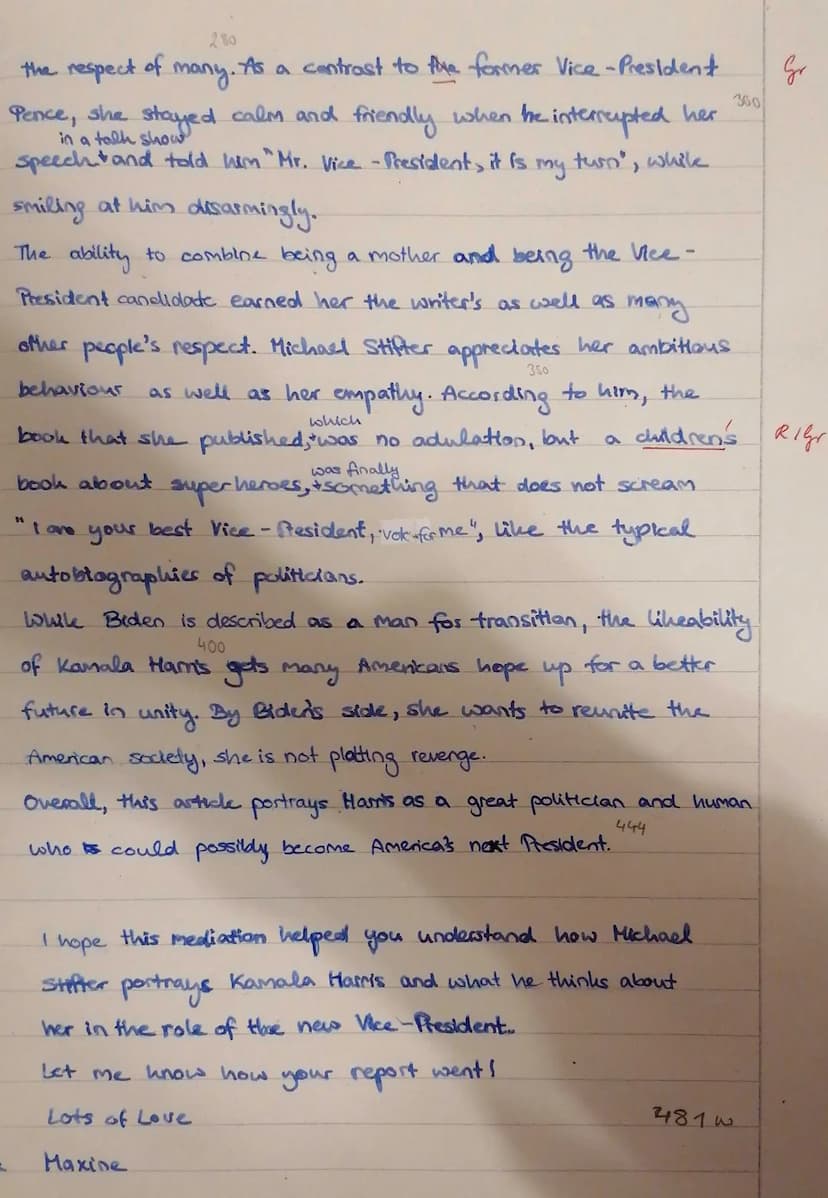 280
the respect of many. As a contrast to the former Vice-President Gr
Pence, she stayed calm and friendly when he interrupted her 300
in a talk show
speech and told him "Mr. Vice-President, it is my turn", while
smiling at him disarmingly.
The ability to combine being a mother and being the Vice-
President candidate earned her the writer's as well as many
other people's respect. Michael Stifter appreciates her ambitious
350
behaviour as well as her empathy. According to him, the
which
book that she published, was no adulation, but a children's R/Gr
was finally
book about superheroes, something that does not scream
"I am your best Vice-President, vote for me", like the typical
autobiographies of politicians.
While Biden is described as a man for transition, the likeability
400
of Kamala Harris gets many Americans hope up for a better
future in unity. By Biden's side, she wants to reunite the
American society, she is not plotting revenge.
Overall, this article portrays Harris as a great politician and human
444
who could possibly become America's next President.
I hope this mediation helped you understand how Michael
Stifter portrays Kamala Harris and what he thinks about
her in the role of the new Vice-President.
Let me know how your report went!
Lots of Love 481 w
Maxine